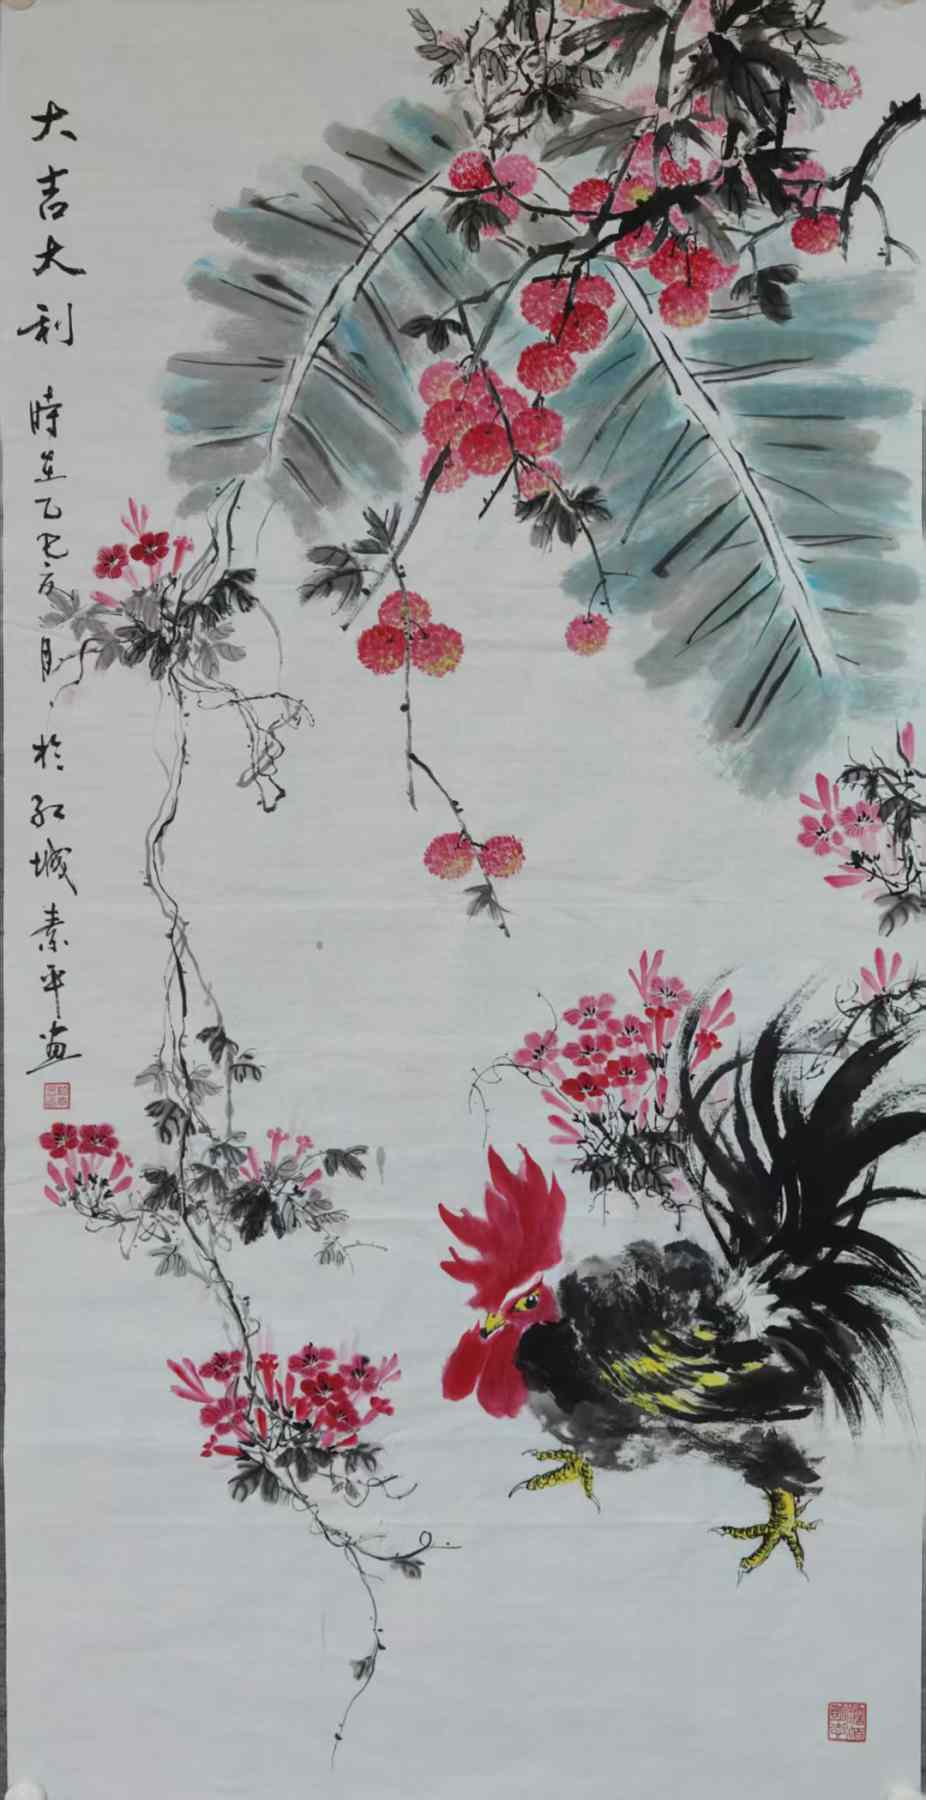 大吉大利 時在乙巳亥月 於红城素平画